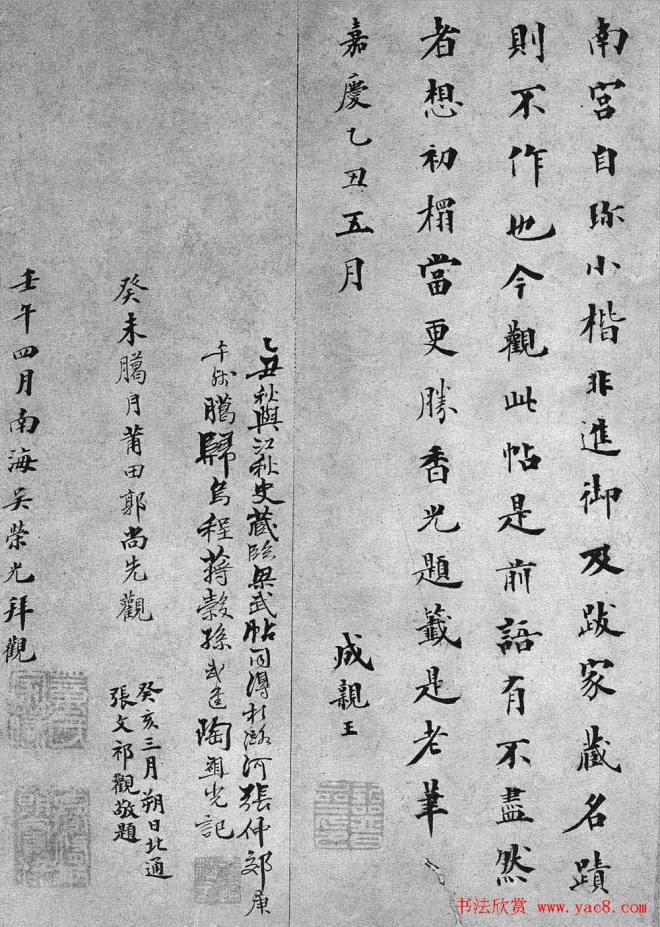 南宮自珎小楷非進御及跋家藏名蹟
則不作也今觀此帖是前語有不盡然
者想初榻當更勝香光題籤是老筆
嘉慶乙丑五月
成親王
乙丑秋與江秋史藏臨梁武帖同得於潞河張仲郊庚
午殘臘歸烏程蔣穀孫武進陶
光記
癸未臈月莆田郭尚先觀
癸亥三月朔日北通
張文祁觀敬題
壬午四月南海吳榮光拜觀
书法欣赏 www.yac8.com